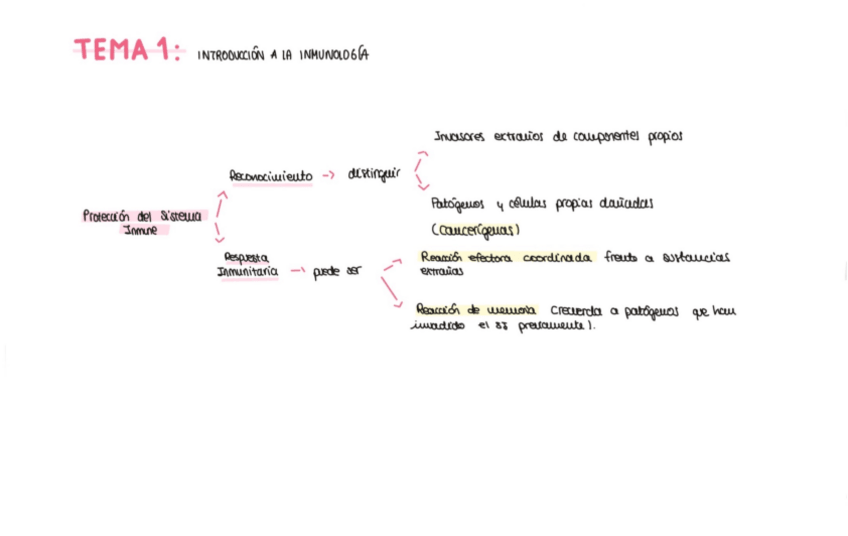 TEMA 1: INTRODUCCIÓN A LA INMUNOLOGÍA
Invasores extraños de componentes propios
Reconocimiento → distinguir
Patógenos y células propias dañadas
(cancerígenas)
Protección del Sistema
Inmune
Respuesta
Inmunitaria → puede ser
Reacción efectora coordinada frente a sustancias
extrañas
Reacción de memoria (recuerda a patógenos que han
invadido el SI previamente).